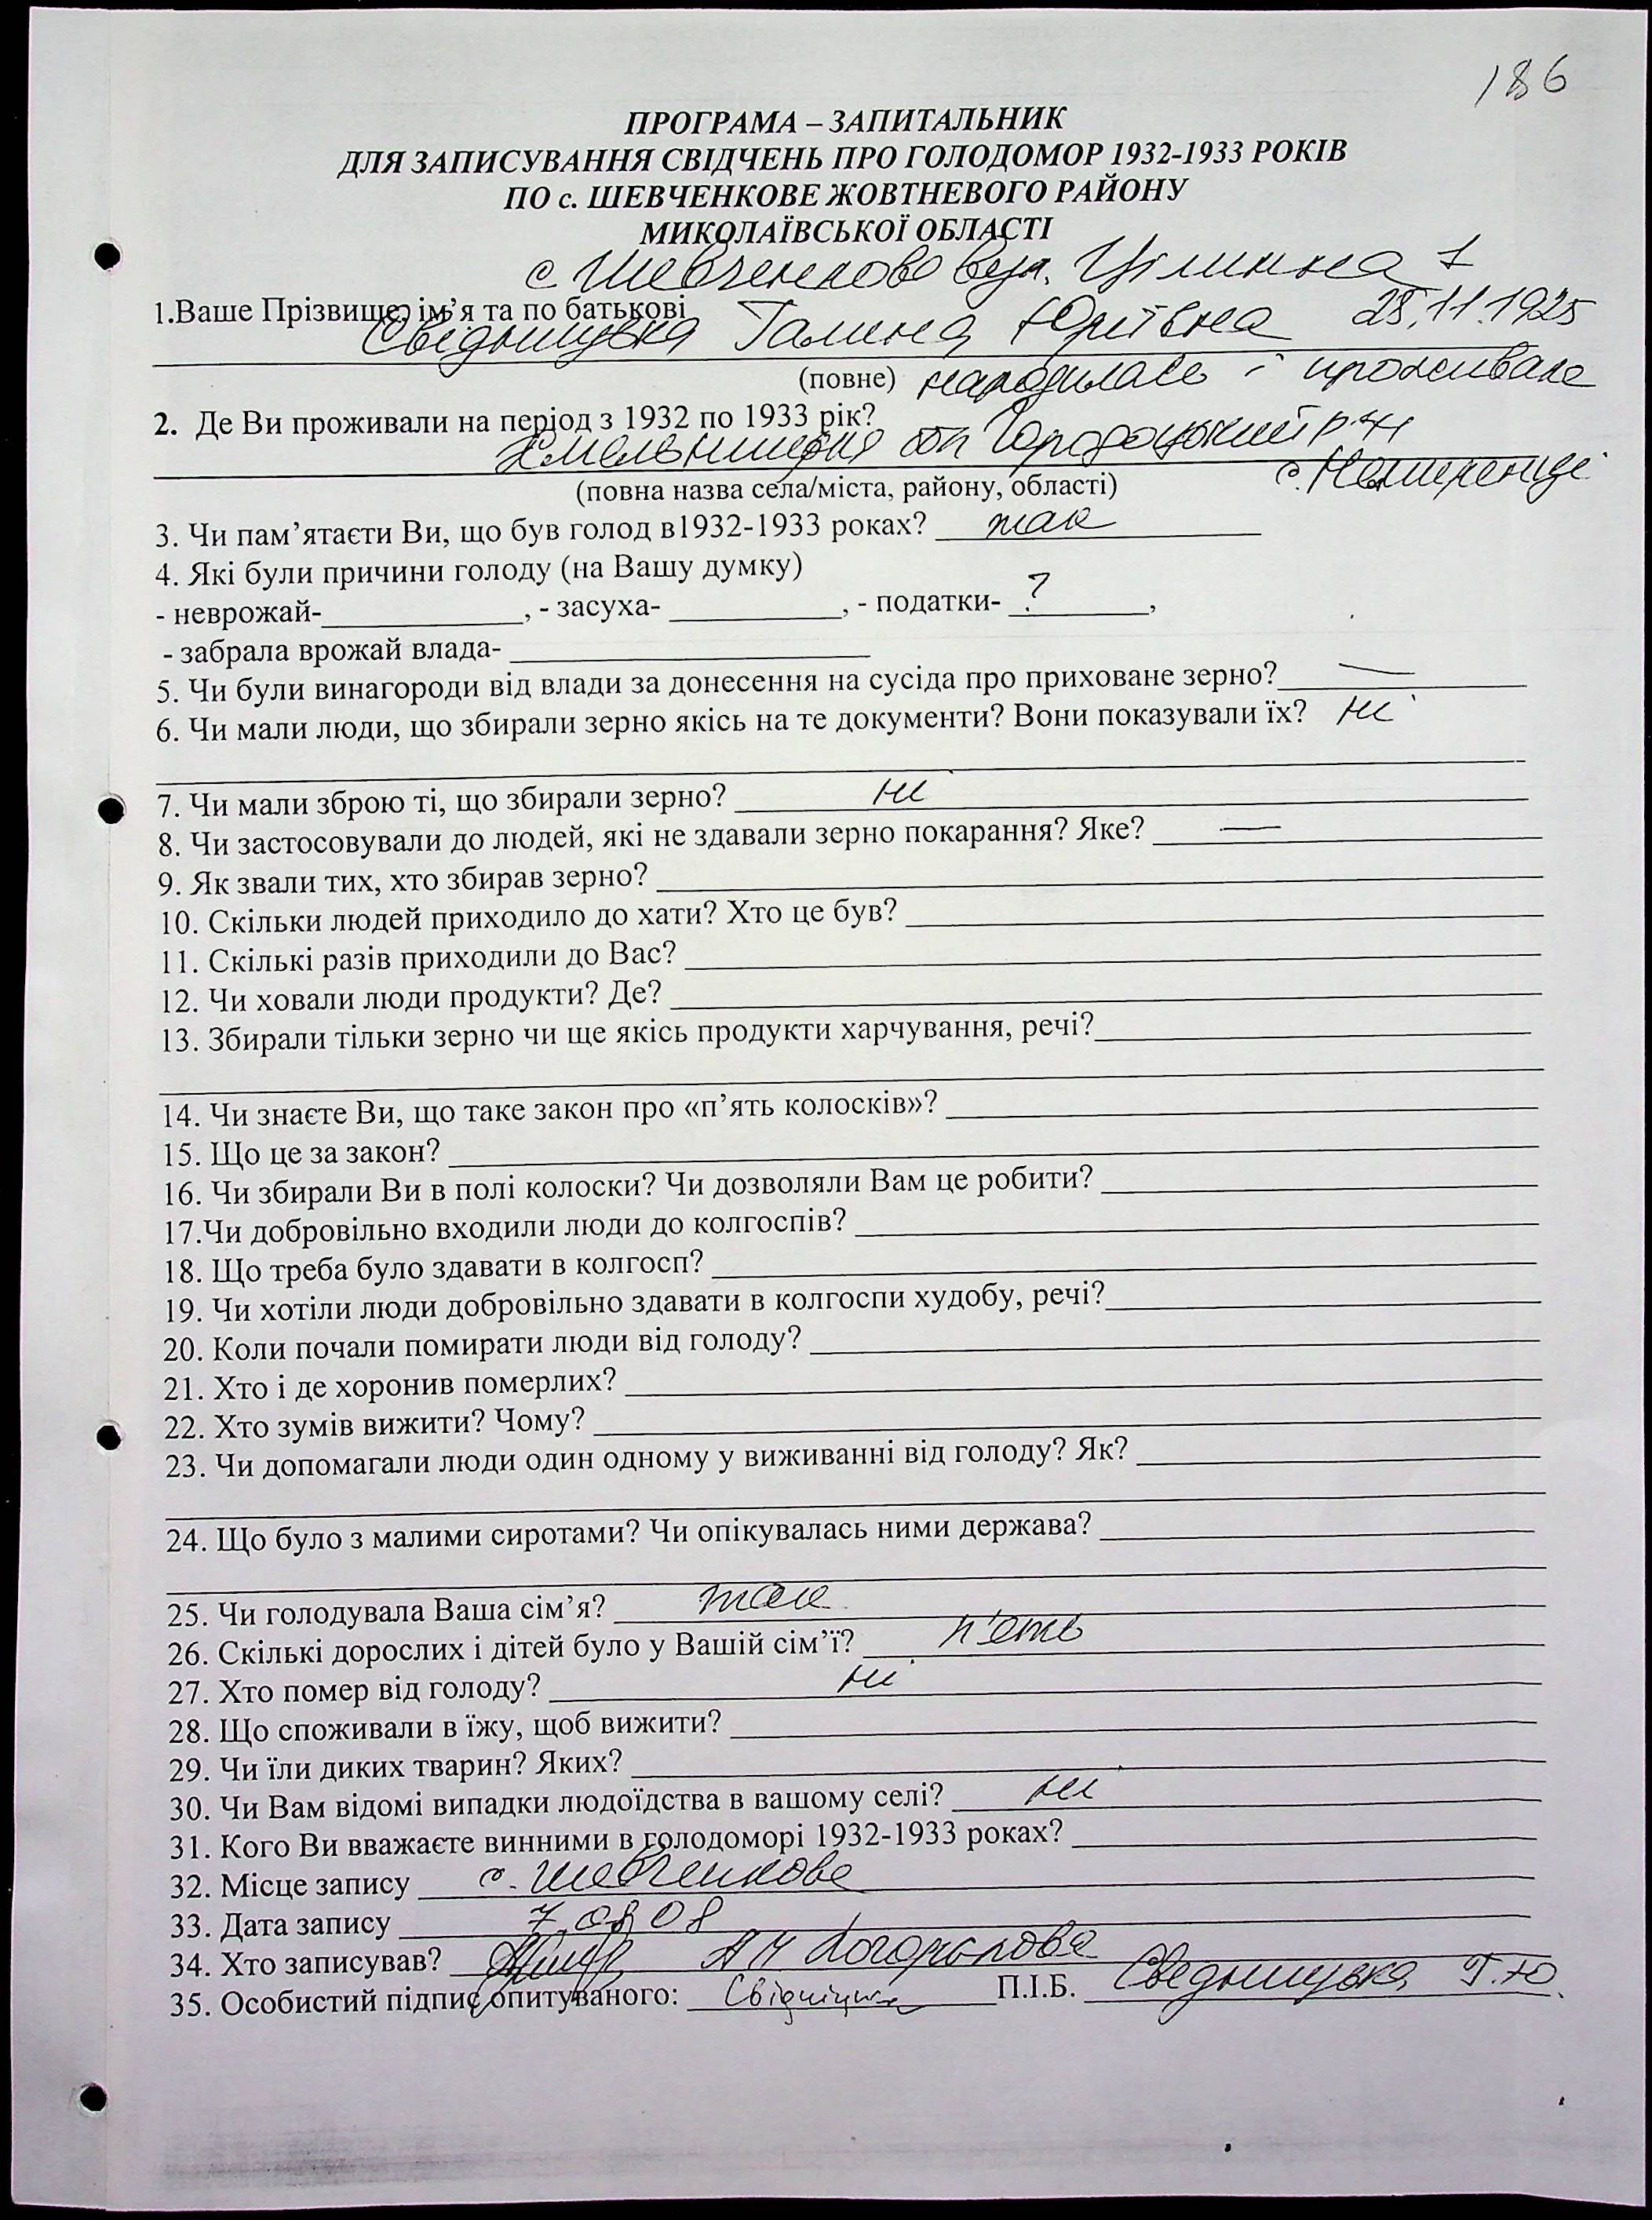 186
ПРОГРАМА – ЗАПИТАЛЬНИК
ДЛЯ ЗАПИСУВАННЯ СВІДЧЕНЬ ПРО ГОЛОДОМОР 1932-1933 РОКІВ
ПО с. ШЕВЧЕНКОВЕ ЖОВТНЕВОГО РАЙОНУ
МИКОЛАЇВСЬКОЇ ОБЛАСТІ
с Шевченково вул. Цілинна 1
1.Ваше Прізвище, ім’я та по батькові
Свідницька Галина Юріївна 28.11.1925
(повне) народилась і проживала
2. Де Ви проживали на період з 1932 по 1933 рік?
Хмельницька обл Городоцький р-н
с.
(повна назва села/міста, району, області)
3. Чи пам’ятаєти Ви, що був голод в1932-1933 роках? так
4. Які були причини голоду (на Вашу думку)
- неврожай-____________, - засуха- ___________, - податки- ?,
- забрала врожай влада- ______________________
5. Чи були винагороди від влади за донесення на сусіда про приховане зерно? —
6. Чи мали люди, що збирали зерно якісь на те документи? Вони показували їх? ні
7. Чи мали зброю ті, що збирали зерно? ні
8. Чи застосовували до людей, які не здавали зерно покарання? Яке? —
9. Як звали тих, хто збирав зерно?
10. Скільки людей приходило до хати? Хто це був?
11. Скількі разів приходили до Вас?
12. Чи ховали люди продукти? Де?
13. Збирали тільки зерно чи ще якісь продукти харчування, речі?
14. Чи знаєте Ви, що таке закон про «п’ять колосків»?
15. Що це за закон?
16. Чи збирали Ви в полі колоски? Чи дозволяли Вам це робити?
17.Чи добровільно входили люди до колгоспів?
18. Що треба було здавати в колгосп?
19. Чи хотіли люди добровільно здавати в колгоспи худобу, речі?
20. Коли почали помирати люди від голоду?
21. Хто і де хоронив померлих?
22. Хто зумів вижити? Чому?
23. Чи допомагали люди один одному у виживанні від голоду? Як?
24. Що було з малими сиротами? Чи опікувалась ними держава?
25. Чи голодувала Ваша сім’я? так
26. Скількі дорослих і дітей було у Вашій сім’ї? п'ять
27. Хто помер від голоду? ні
28. Що споживали в їжу, щоб вижити?
29. Чи їли диких тварин? Яких?
30. Чи Вам відомі випадки людоїдства в вашому селі? ні
31. Кого Ви вважаєте винними в голодоморі 1932-1933 роках?
32. Місце запису с. Шевченкове
33. Дата запису 7.08 08
34. Хто записував?
35. Особистий підпис опитуваного: Свідніцька П.І.Б. Сведницька Г.Ю.